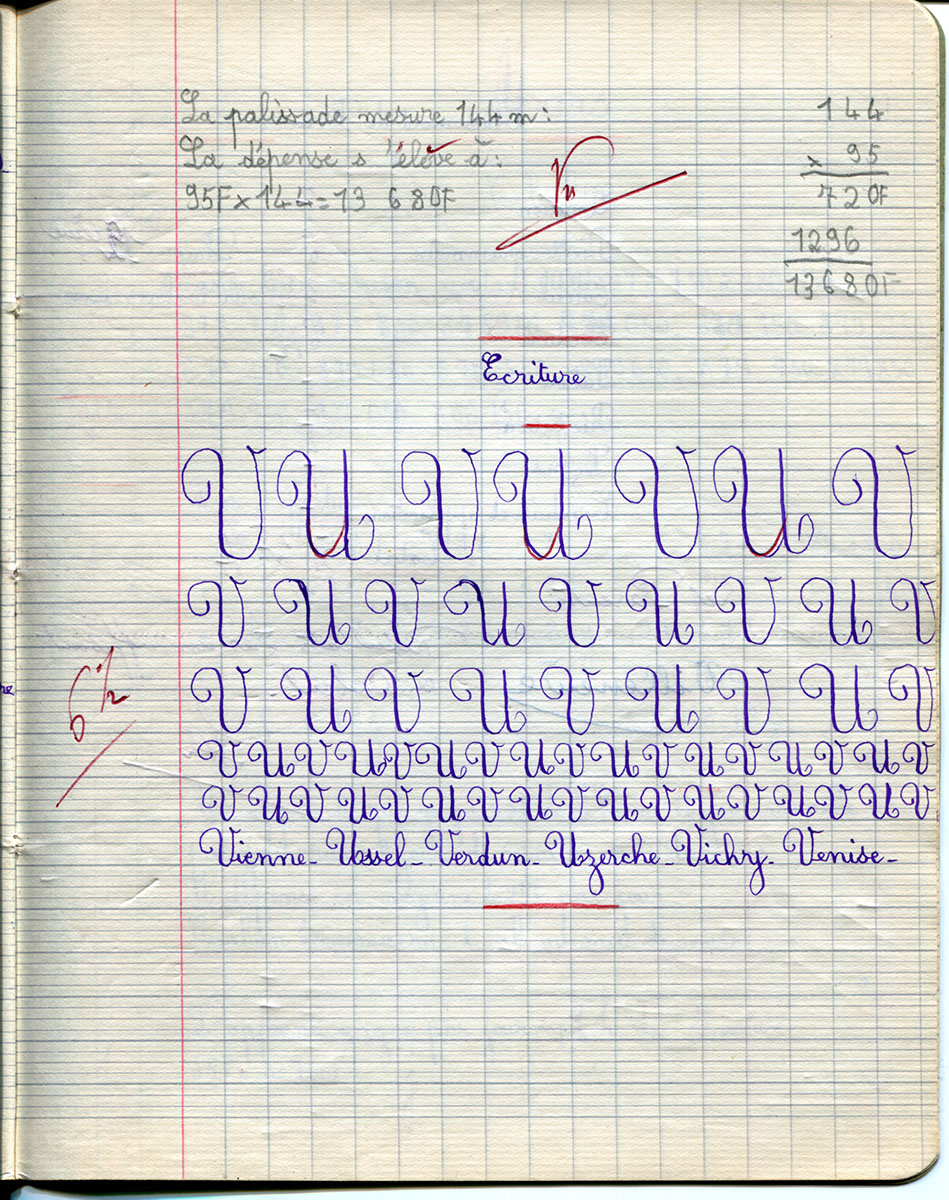 La palissade mesure 144m:
La dépense s'élève à:
95F×144=13 680F
144
× 95
720F
1296
13680F
Ecriture
V U V U V U V
V U V U V U V U V
V U V U V U V U V
V U V U V U V U V U V U V U V U V
V U V U V U V U V U V U V U V U V
Vienne - Ussel - Verdun - Uzerche - Vichry - Venise -
6 1/2